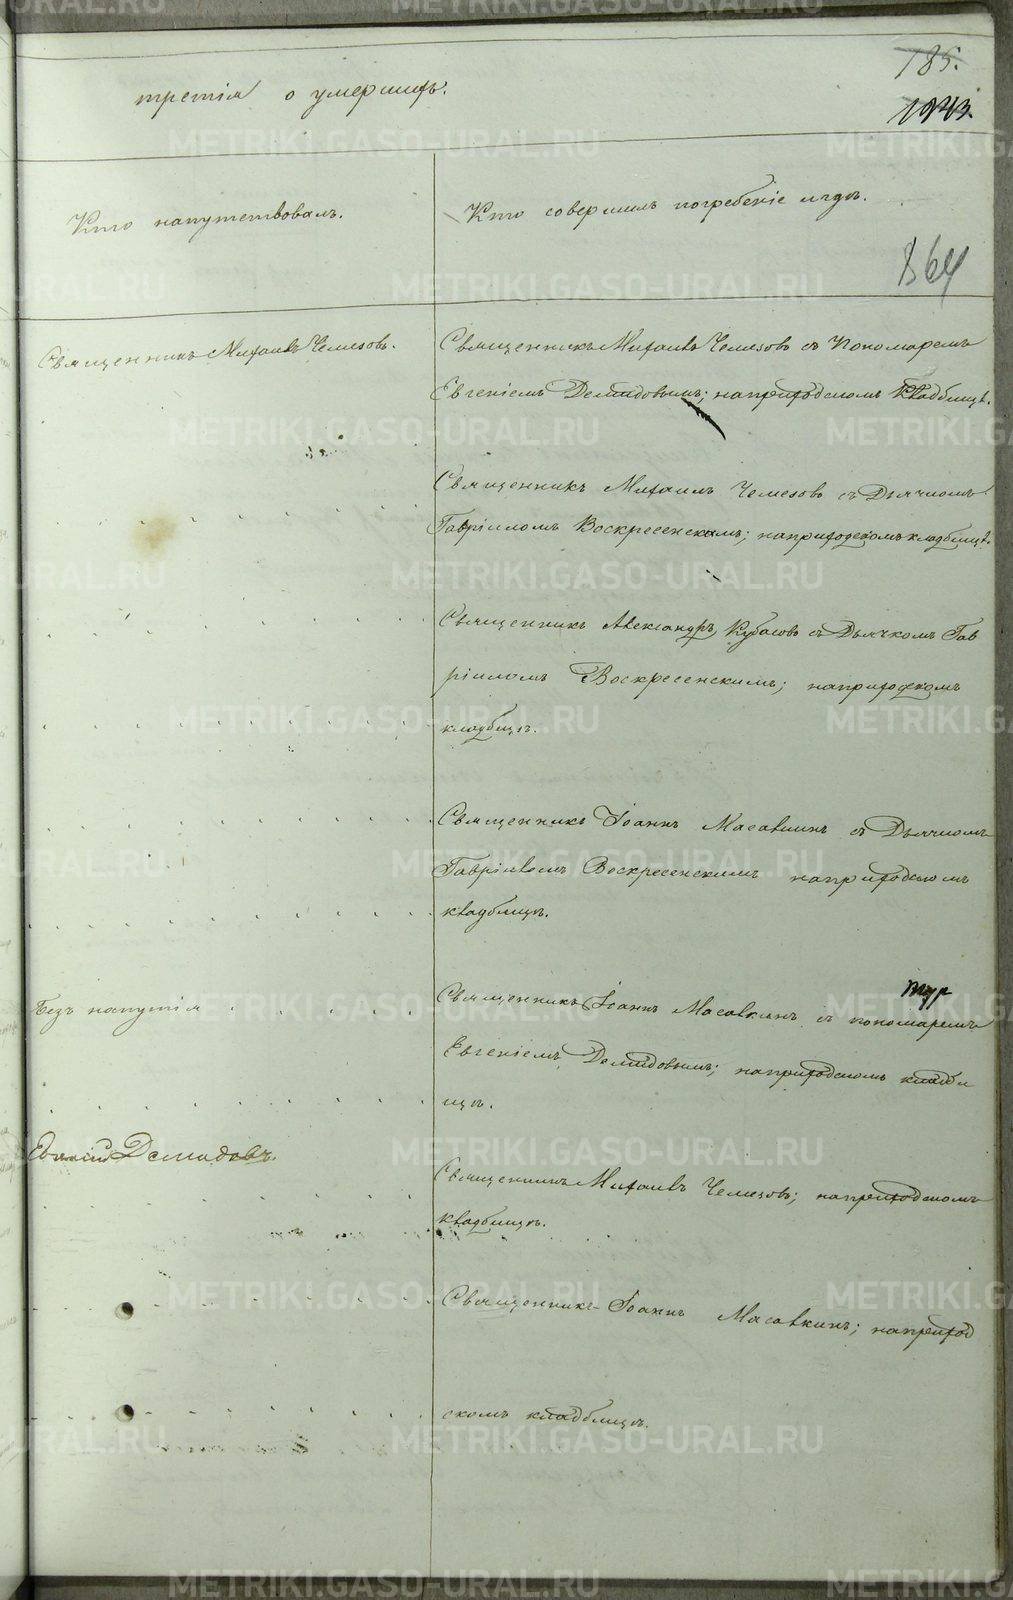 185.
третія о умершихъ.
Кто напутствовалъ.
Кто совершилъ погребеніе и гдѣ.
864
Священникъ Михаилъ Чемезовъ.
Священникъ Михаилъ Чемезовъ съ Пономаремъ
Евгеніемъ Демидовымъ; наприходскомъ кладбищѣ.
Священникъ Михаилъ Чемезовъ съ Дьячкомъ
Гавріиломъ Воскресенскимъ; наприходскомъ кладбищѣ.
Священникъ Александръ Кубасовъ съ Дьячкомъ Гав
ріиломъ Воскресенскимъ; наприходскомъ
кладбищѣ.
Священникъ Іоаннъ Масавкинъ съ Дьячкомъ
Гавріиломъ Воскресенскимъ наприходскомъ
кладбищѣ.
Безъ напутія
Священникъ Іоаннъ Масавкинъ съ пономаремъ
Евгеніемъ Демидовымъ; наприходскомъ кладби
щѣ.
Демидовъ.
Священникъ Михаилъ Чемезовъ; наприходскомъ
кладбищѣ.
Священникъ Іоаннъ Масавкинъ; наприход
скомъ кладбищѣ.
METRIKI.GASO-URAL.RU